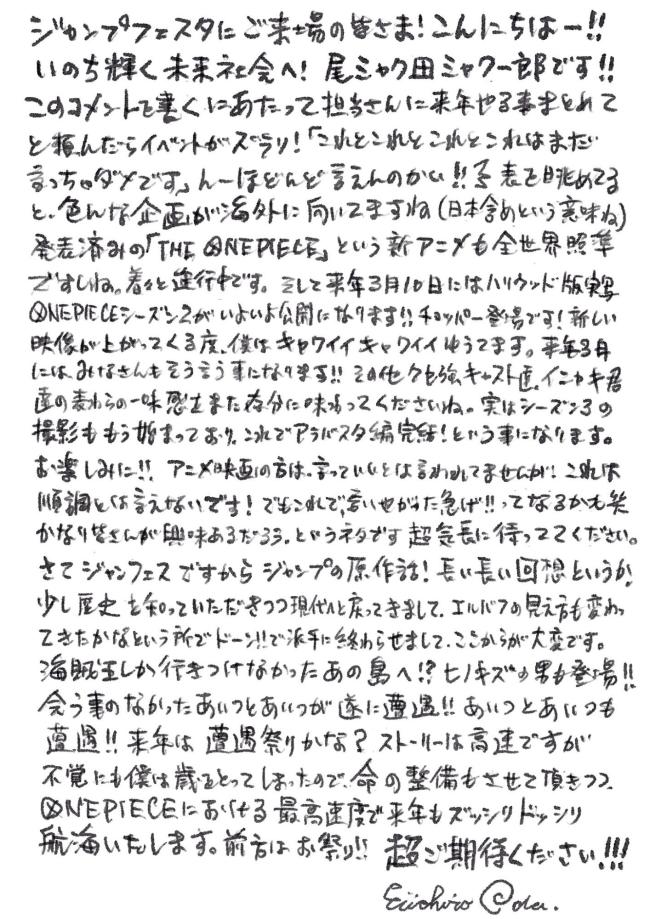 ジャンプフェスタにご来場の皆さま！こんにちはー!!
いのち輝く未来社会へ！尾ミャク田ミャクー郎です!!
このコメントを書くにあたって担当さんに来年やる事まとめて
と頼んだらイベントがズラリ！「これとこれとこれとこれはまだ
言っちゃダメです」んーほどんど言えんのかい!!予表を眺めてる
と、色んな企画が海外に向いてますね（日本含めという意味ね）
発表済みの「THE ONEPIECE」という新アニメも全世界照準
ですしね。着々と進行中です。そして来年3月10日にはハリウッド版実写
ONEPIECEシーズン2がいよいよ公開になります!!チョッパー登場です！新しい
映像が上がってくる度、僕はキャワイイキャワイイゆうてます。来年3月
には、みなさんもそう言う事になります!!その他クセ強キャスト達、イニャキ君
達の麦わらの一味愛もまた存分に味わってくださいね。実はシーズン3の
撮影ももう始まっており、これでアラバスタ編完結！という事になります。
お楽しみに!!アニメ映画の方は、言っていいとは言われてませんが、これは
順調とは言えないです！でもこれで、言いやがった急げ!!ってなるかも笑
かなり皆さんが興味あるだろう、というネタです超気長に待っててください。
さてジャンフェスですからジャンプの原作話！長い長い回想というか、
少し歴史を知っていただきつつ現代へと戻ってきまして、エルバフの見え方も変わっ
てきたかなという所でドーン!!で派手に終わらせまして、ここからが大変です。
海賊王しか行きつけなかったあの島へ!?ヒノキズの男も登場!!
会う事のなかったあいつとあいつが遂に遭遇!!あいつとあいつも
遭遇!!来年は遭遇祭りかな？ストーリーは高速ですが
不覚にも僕は歳をとってしまったので、命の整備もさせて頂きつつ
ONEPIECEにおける最高速度で来年もズッシリドッシリ
航海いたします。前方はお祭り!!超ご期待ください!!!
Eiichiro Oda.